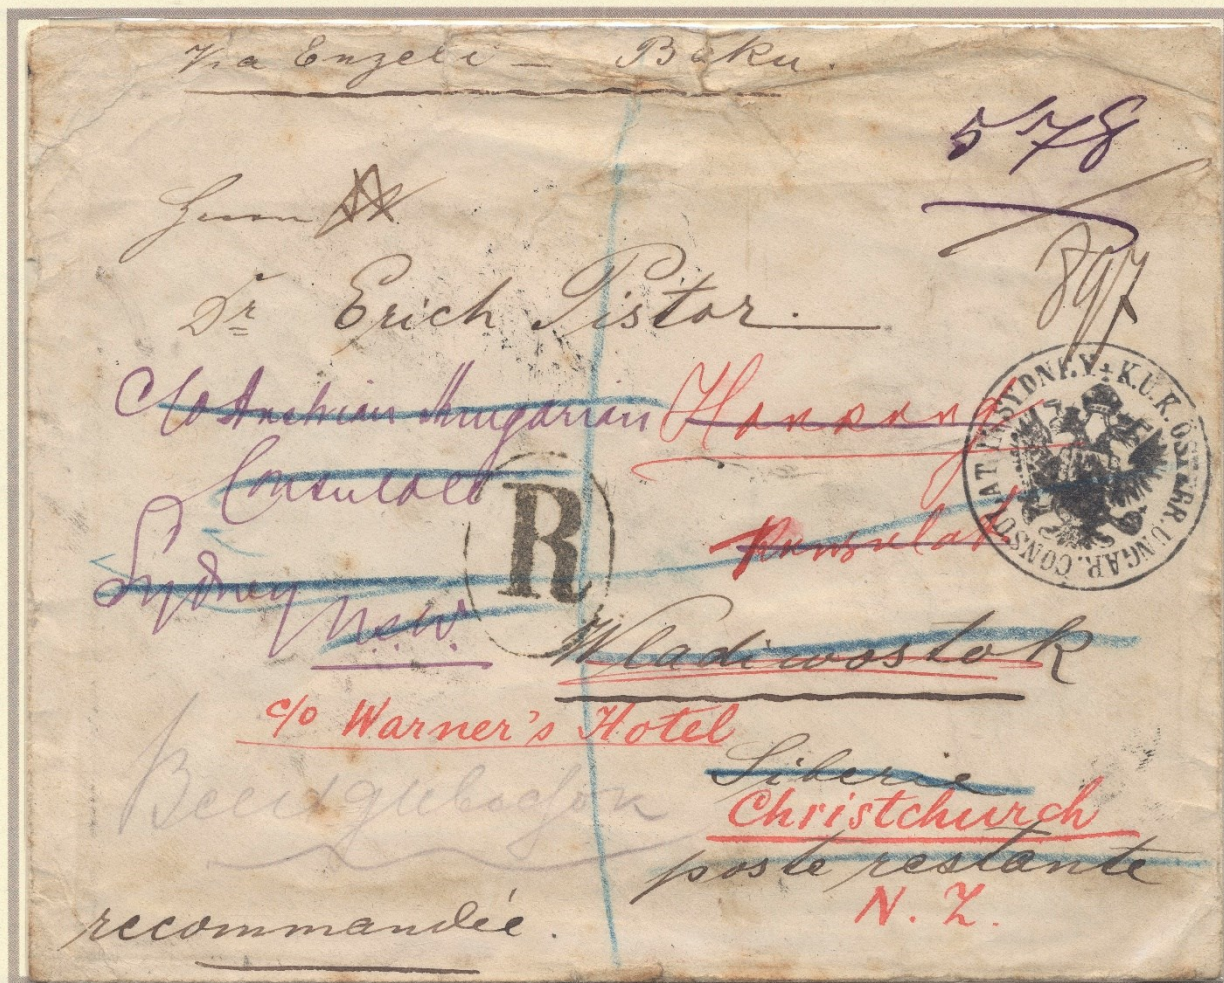 Via Enzeli — Baku.
578
897
Herrn
Dr Erich Pistor.
C/o Austrian Hungarian
Consulate
Sydney
N.S.W.
Honkong
Konsulat
K.U.K. ÖSTERR. UNGAR. CONSULAT IN SYDNEY
R
Wladiwostok
c/o Warner's Hotel
Siberie
Christchurch
poste restante
N. Z.
recommandée.